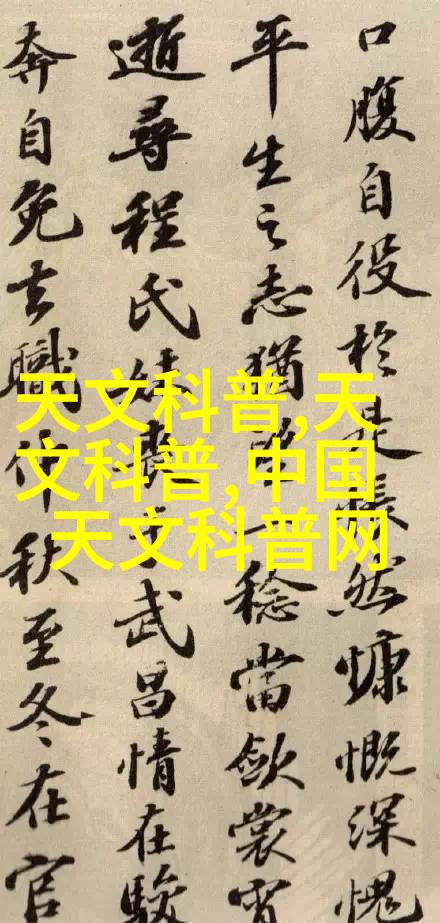 口腹自役於是悵然慷慨深愧
平生之志猶望一稔當歛裳宵
逝尋程氏妹喪于武昌情在駿
奔自免去職仲秋至冬在官
天文科普,天
文科普,中国
天文科普网